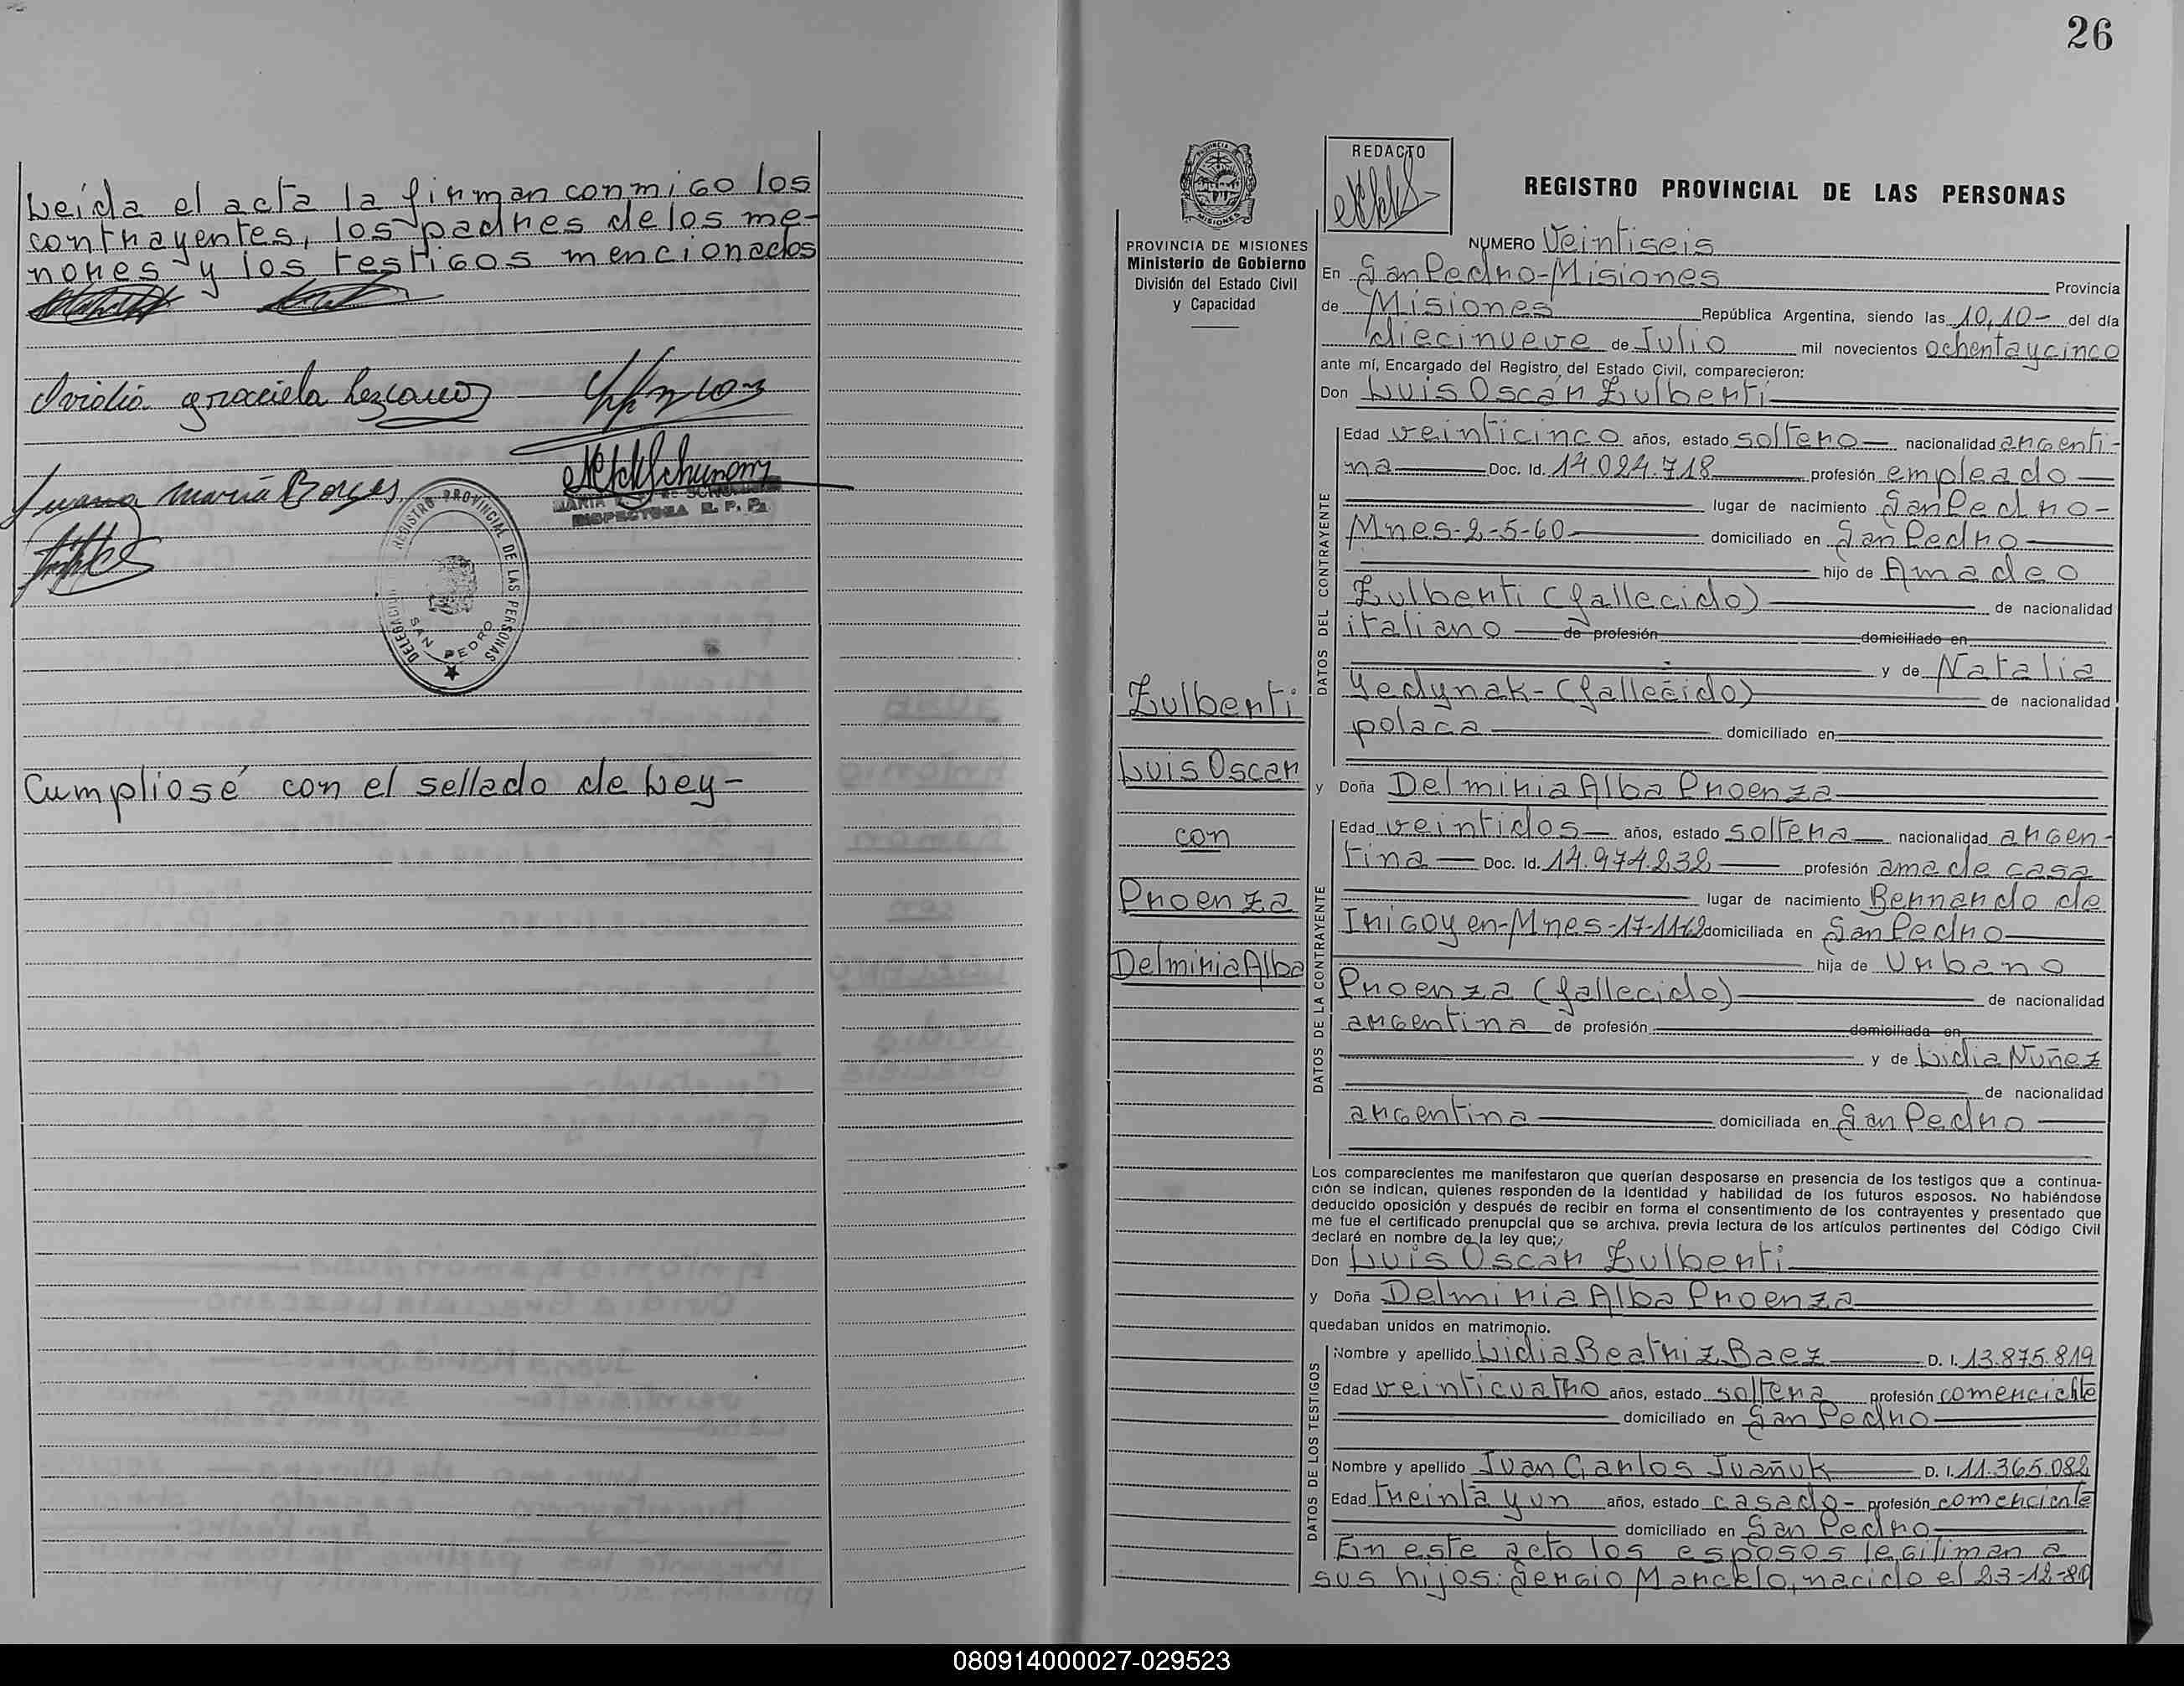 Leída el acta la firman conmigo los
contrayentes, los padres de los me-
nores y los testigos mencionados
Ovidia graciela Lezcano
Juana María Borges
INSPECTORA R. P. P.
DELEGACION REGISTRO PROVINCIAL DE LAS PERSONAS
SAN PEDRO
Cumpliosé con el sellado de Ley-
26
PROVINCIA DE MISIONES
PROVINCIA DE MISIONES
Ministerio de Gobierno
División del Estado Civil
y Capacidad
Zulberti
Luis Oscar
con
Proenza
Delmiria Alba
REDACTO
REGISTRO PROVINCIAL DE LAS PERSONAS
NUMERO Veintiseis
En San Pedro-Misiones Provincia
de Misiones República Argentina, siendo las 10,10- del día
diecinueve de Julio mil novecientos ochentaycinco
ante mí, Encargado del Registro del Estado Civil, comparecieron:
Don Luis Oscar Zulberti
DATOS DEL CONTRAYENTE
Edad veinticinco años, estado soltero nacionalidad argenti-
na Doc. Id. 14.024.718 profesión empleado
lugar de nacimiento San Pedro-
Mnes-2-5-60 domiciliado en San Pedro
hijo de Amadeo
Zulberti (fallecido) de nacionalidad
italiano de profesión domiciliado en
y de Natalia
Yedynak-(fallecido) de nacionalidad
polaca domiciliado en
y Doña Delmiria Alba Proenza
DATOS DE LA CONTRAYENTE
Edad veintidos años, estado soltera nacionalidad argen-
tina Doc. Id. 14.974.232 profesión ama de casa
lugar de nacimiento Bernardo de
Irigoyen-Mnes-17-11-62 domiciliada en San Pedro
hija de Urbano
Proenza (fallecido) de nacionalidad
argentina de profesión domiciliada en
y de Lidia Nuñez
de nacionalidad
argentina domiciliada en San Pedro
Los comparecientes me manifestaron que querían desposarse en presencia de los testigos que a continua-
ción se indican, quienes responden de la identidad y habilidad de los futuros esposos. No habiéndose
deducido oposición y después de recibir en forma el consentimiento de los contrayentes y presentado que
me fue el certificado prenupcial que se archiva, previa lectura de los artículos pertinentes del Código Civil
declaré en nombre de la ley que;
Don Luis Oscar Zulberti
y Doña Delmiria Alba Proenza
quedaban unidos en matrimonio.
DATOS DE LOS TESTIGOS
Nombre y apellido Lidia Beatriz Baez D. I. 13.875.819
Edad veinticuatro años, estado soltera profesión comerciante
domiciliado en San Pedro
Nombre y apellido Juan Carlos Juañuk D. I. 11.365.082
Edad treinta y un años, estado casado- profesión comerciante
domiciliado en San Pedro
En este acto los esposos legitiman a
sus hijos: Sergio Marcelo, nacido el 23-12-80
080914000027-029523